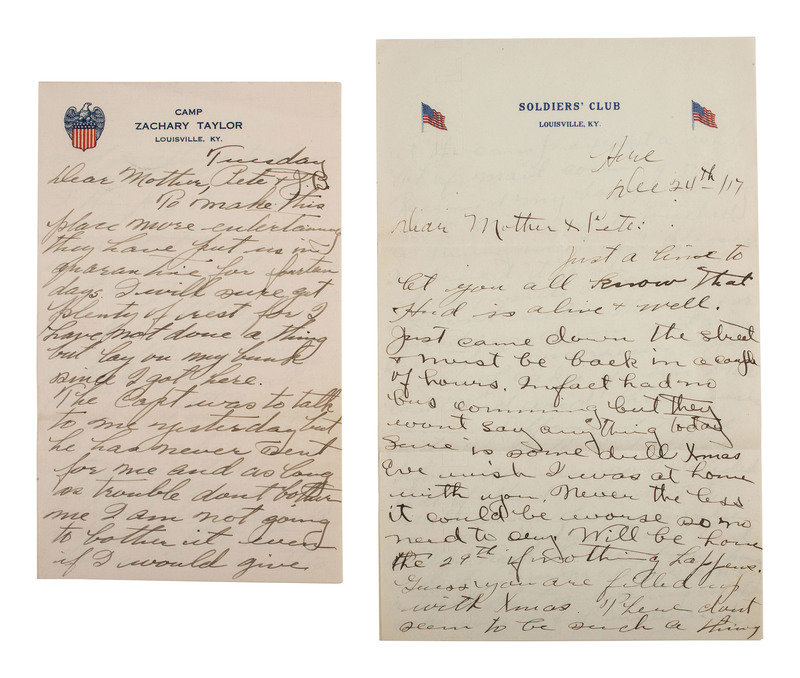 CAMP
ZACHARY TAYLOR
LOUISVILLE, KY.
Tuesday
Dear Mother, Pete &
To make this
place more entertaining
they have put us in
quarantine for
days. I will sure get
plenty of rest for I
have not done a thing
but lay on my bunk
since I got here.
The Capt was to talk
to me yesterday but
he has never sent
for me and as long
as trouble dont bother
me I am not going
to bother it even
if I would give
SOLDIERS' CLUB
LOUISVILLE, KY.
Here
Dec 24th/17
Dear Mother & Pete:
Just a line to
let you all know that
Hud is alive & well.
Just came down the street
& must be back in a couple
of hours. Infact had no
bus comming but they
wont say anything today
Sure is some dull Xmas
Eve wish I was at home
with you. Never the less
it could be worse so no
need to cry. Will be home
the 29th if nothing happens.
Guess you are filled up
with Xmas. There dont
seem to be such a thing